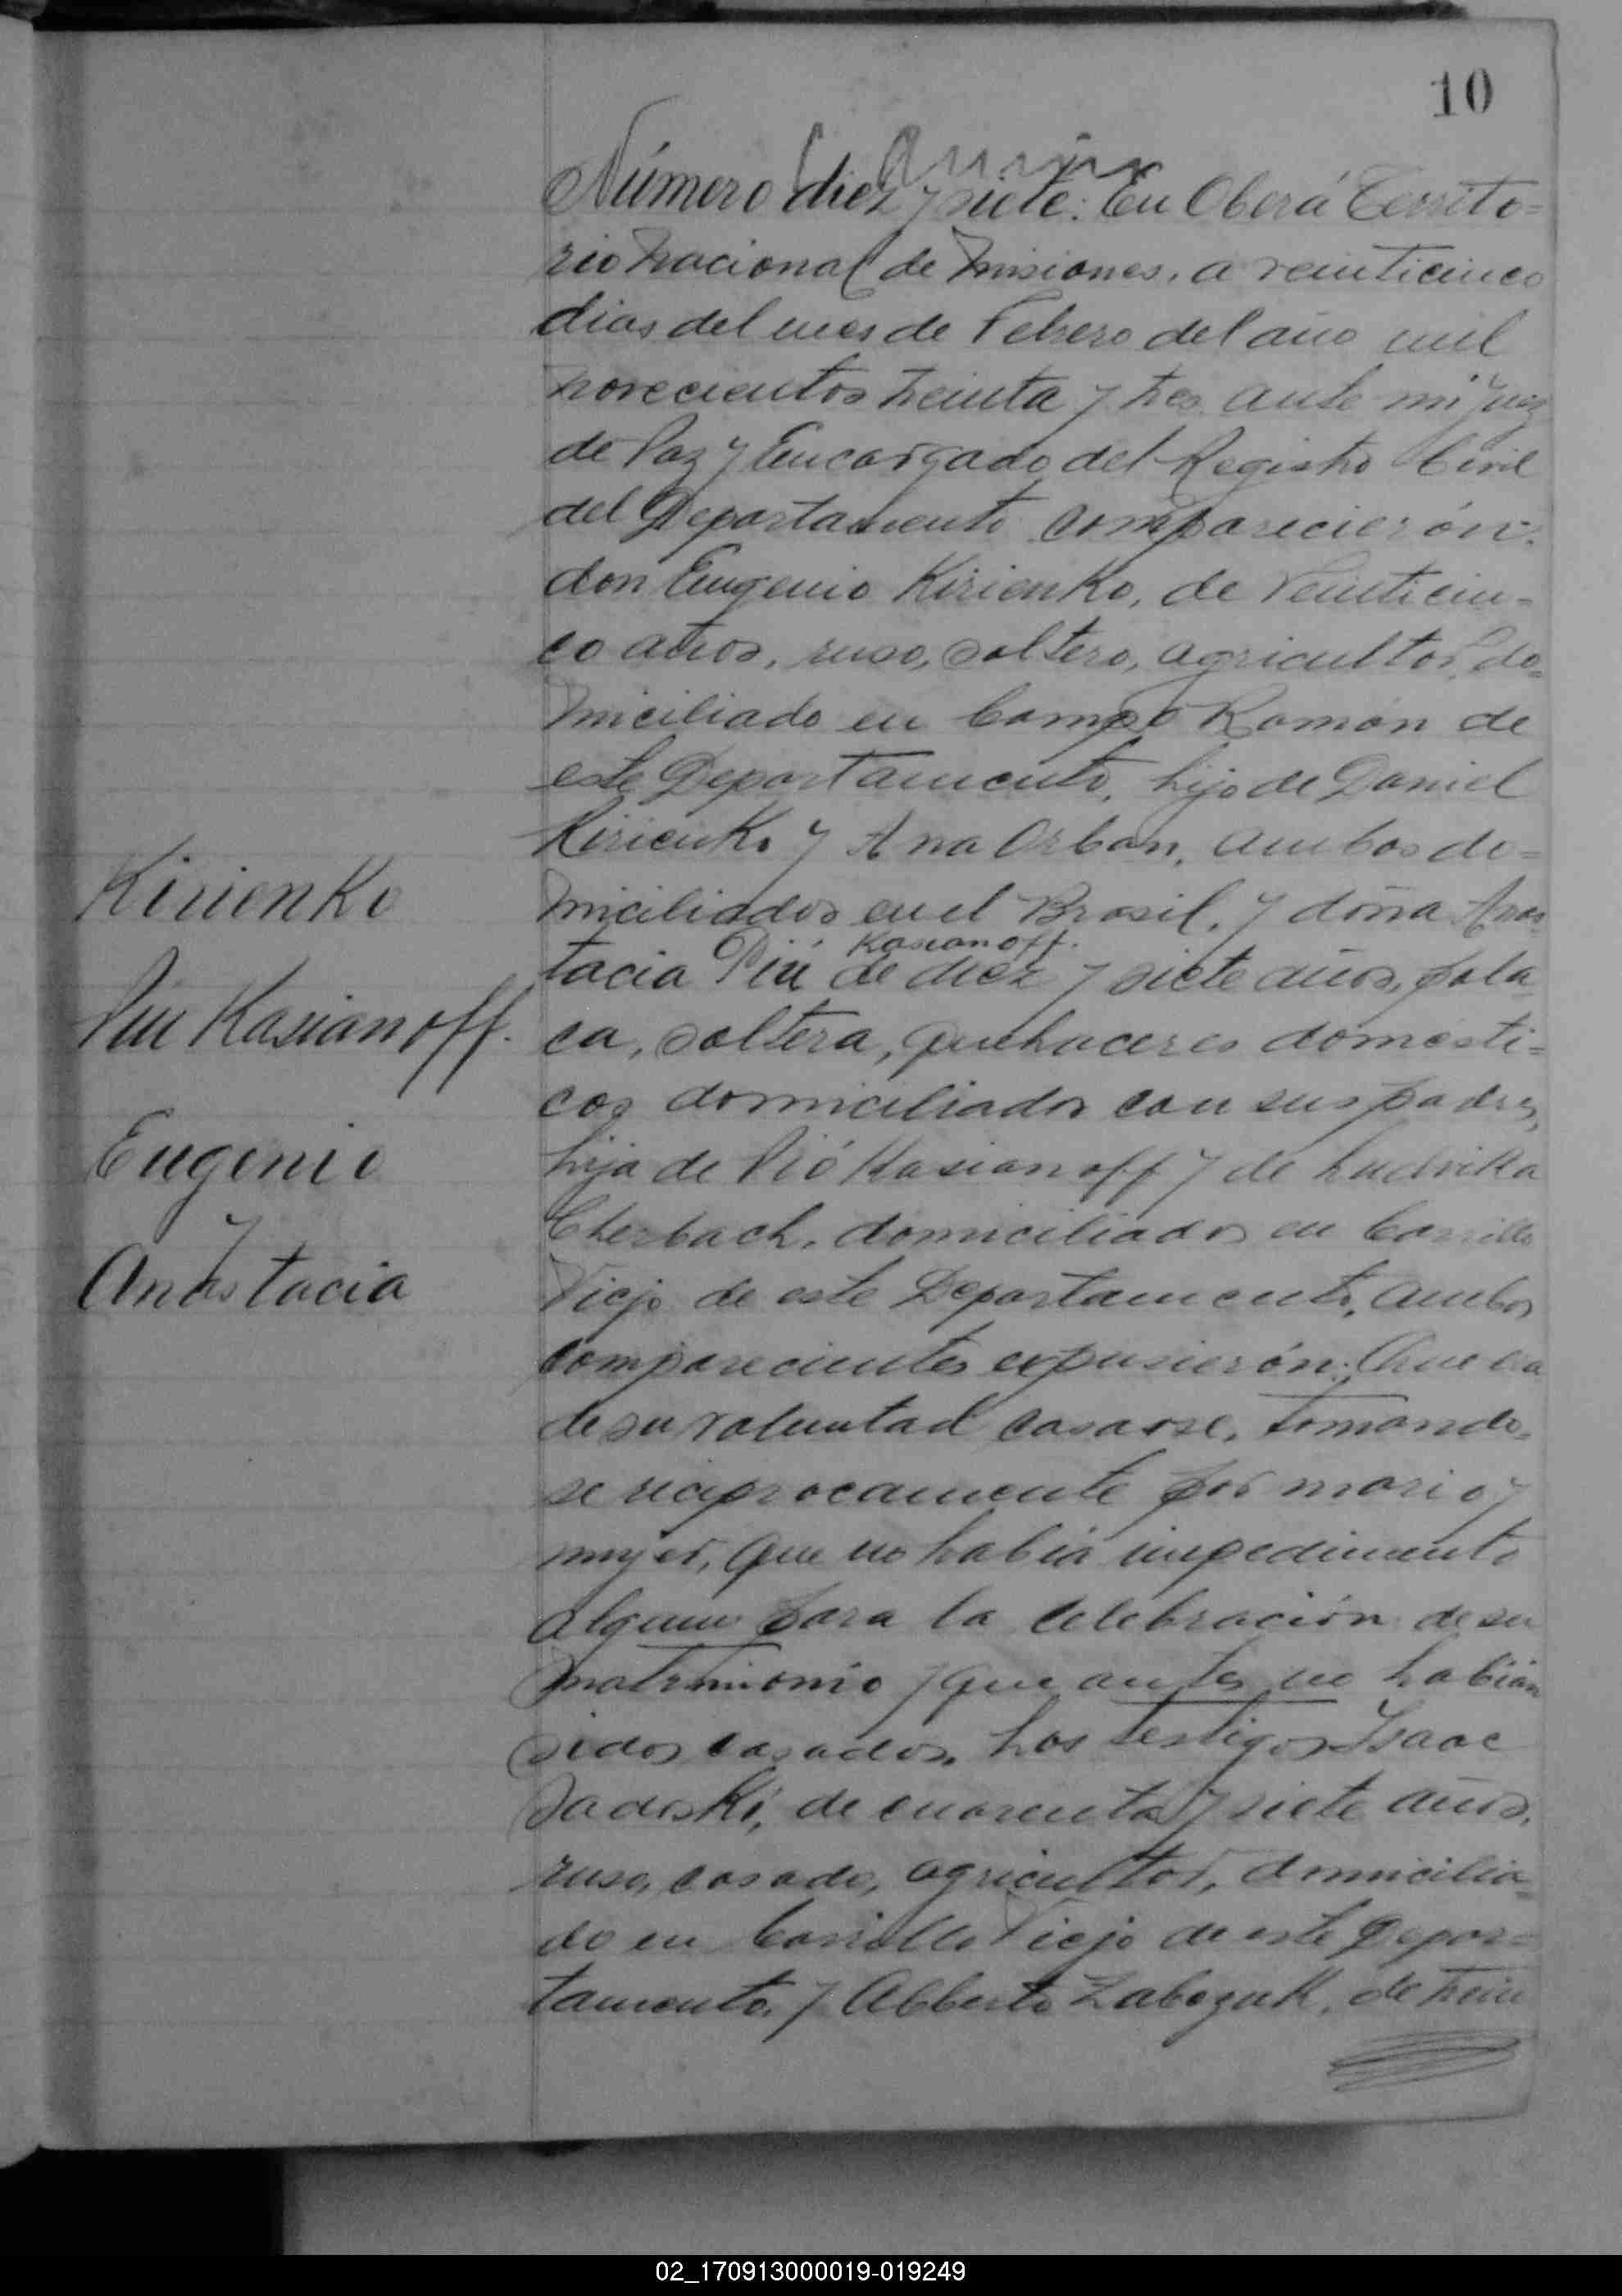 10
Número diez y siete: En Oberá Territo=
rio Nacional de Misiones, a veinticinco
dias del mes de Febrero del año mil
novecientos treinta y tres ante mi Juez
de Paz y Encargado del Registro Civil
del Departamento comparecierón:
don Eugenio Kirienko, de veinticin=
co años, ruso, soltero, agricultor, do=
miciliado en Campo Ramón de
este Departamento, hijo de Daniel
Kirienko y Ana Orban, ambos do=
miciliados en el Brasil, y doña Anas
Kasianoff.
tacia Piú de diez y siete años, pola
ca, soltera, quehaceres domesti=
cos domiciliados con sus padres,
hija de Pió Kasianoff y de Ludvika
Cherbach, domiciliados en Carrillo
Viejo de este Departamento, ambos
comparecientes expusierón: Que era
de su voluntad casarse, tomando=
se reciprocamente por mario y
mujer, que no había impedimento
alguno para la celebración de su
matrimonio y que antes no habián
sidos casados. Los testigos Isaac
Sadoski, de cuarenta y siete años,
ruso, casado, agricultor, domicilia=
do en Carrillo Viejo de este Depar=
tamento, y Alberto Zabozuk, de trein
Kirienko
Piu Kasianoff.
Eugenio
y
Anastacia
02_170913000019-019249